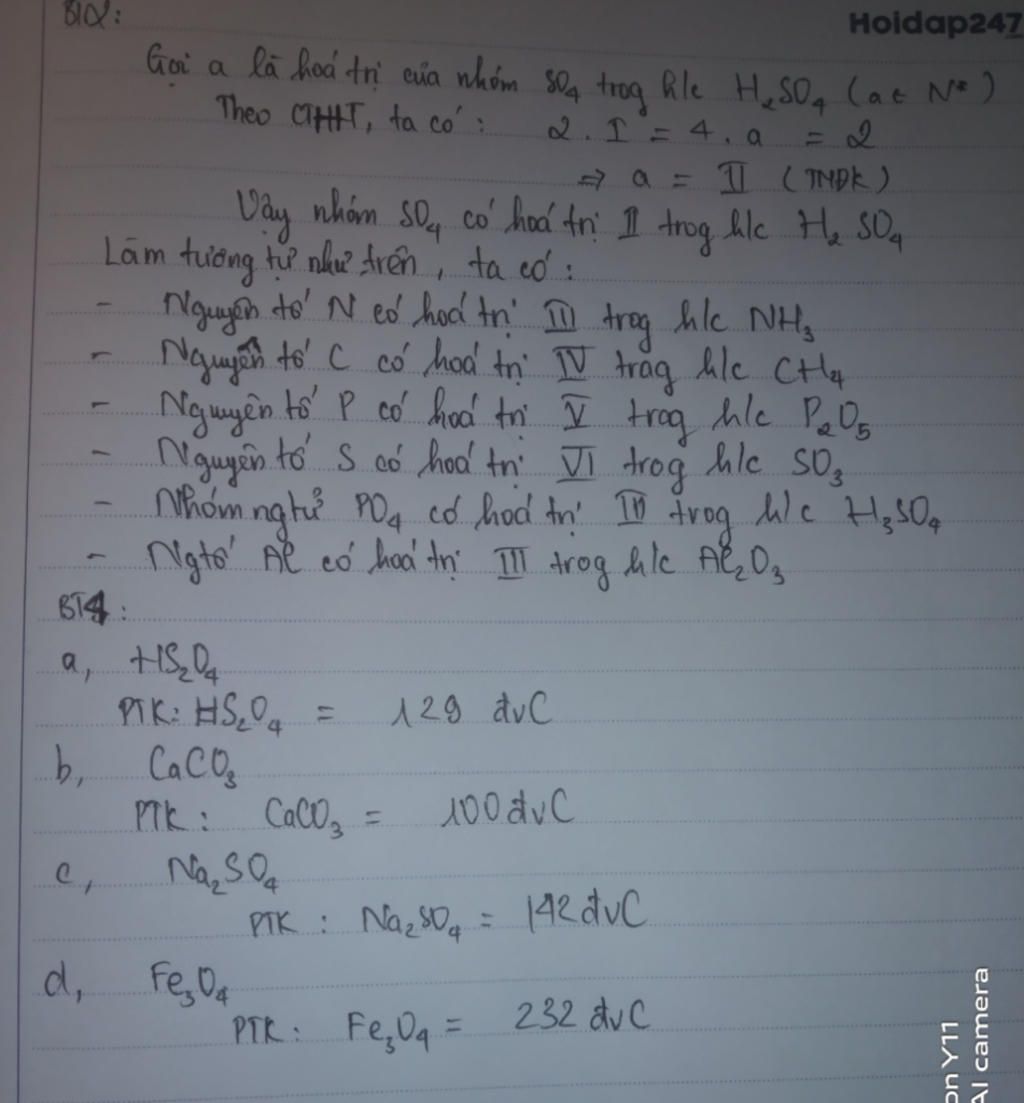 BT2:
Hoidap247
Gọi a là hoá trị của nhóm SO₄ trog h/c H₂SO₄ (a ∈ N*)
Theo CTHHT, ta có: 2 . I = 4 . a = 2
=> a = II (TMĐK)
Vậy nhóm SO₄ có hoá trị II trog h/c H₂SO₄
Làm tương tự như trên, ta có:
- Nguyên tố N có hoá trị III trog h/c NH₃
- Nguyên tố C có hoá trị IV trog h/c CH₄
- Nguyên tố P có hoá trị V trog h/c P₂O₅
- Nguyên tố S có hoá trị VI trog h/c SO₃
- Nhóm ng tử PO₄ có hoá trị III trog h/c H₃SO₄
- Ng tố Al có hoá trị III trog h/c Al₂O₃
BT4:
a, HS₂O₄
PTK: HS₂O₄ = 129 đvC
b, CaCO₃
PTK: CaCO₃ = 100 đvC
c, Na₂SO₄
PTK: Na₂SO₄ = 142 đvC
d, Fe₃O₄
PTK: Fe₃O₄ = 232 đvC
on Y11
AI camera